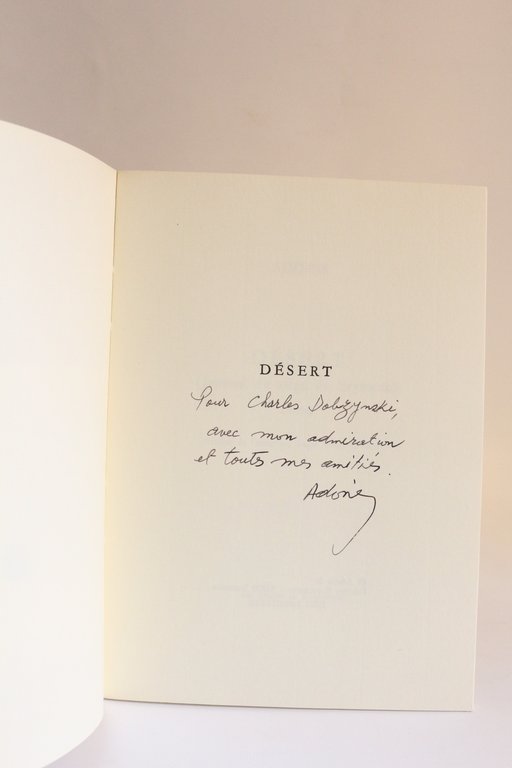 DÉSERT
Pour Charles Dobzynski,
avec mon admiration
et toutes mes amitiés.
Adonis